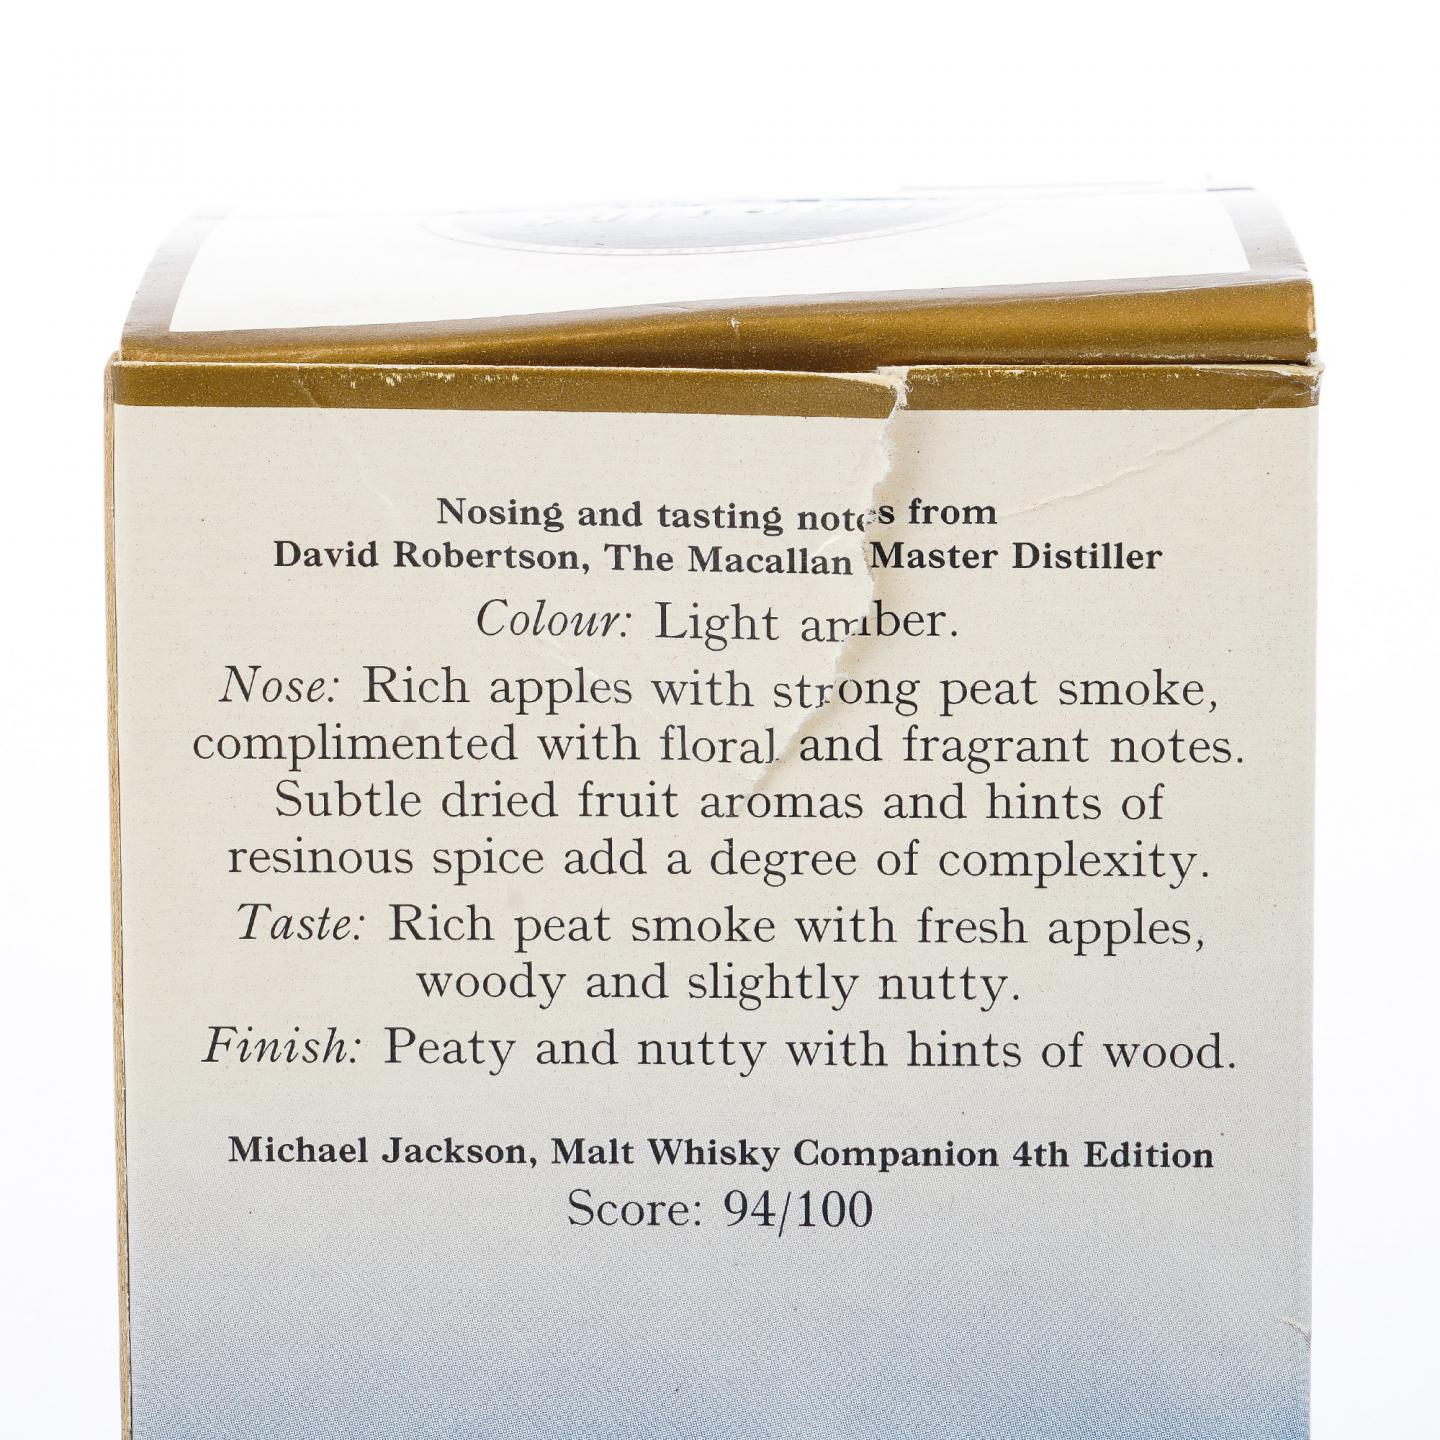 Nosing and tasting notes from
David Robertson, The Macallan Master Distiller
Colour: Light amber.
Nose: Rich apples with strong peat smoke,
complimented with floral and fragrant notes.
Subtle dried fruit aromas and hints of
resinous spice add a degree of complexity.
Taste: Rich peat smoke with fresh apples,
woody and slightly nutty.
Finish: Peaty and nutty with hints of wood.
Michael Jackson, Malt Whisky Companion 4th Edition
Score: 94/100